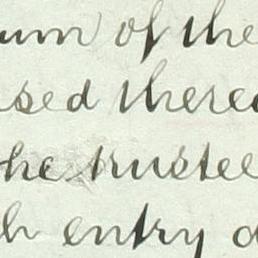 um of the
sed there
he trustee
h entry